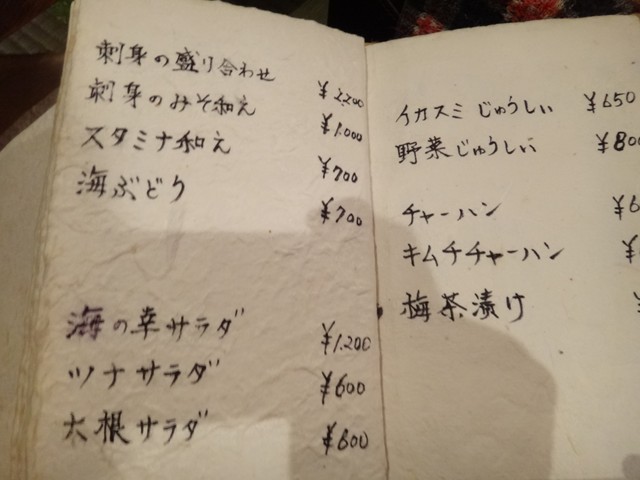 刺身の盛り合わせ ¥2,200
刺身のみそ和え ¥1,000
スタミナ和え ¥700
海ぶどう ¥700
海の幸サラダ ¥1,200
ツナサラダ ¥600
大根サラダ ¥600
イカスミじゅうしぃ ¥650
野菜じゅうしぃ ¥800
チャーハン ¥6
キムチチャーハン ¥
梅茶漬け ¥